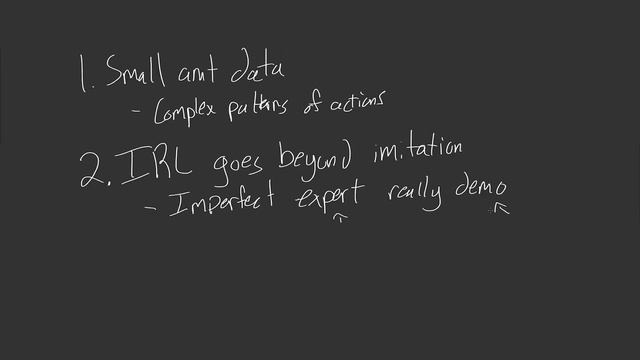 1. Small amt data
- Complex patterns of actions
2. IRL goes beyond imitation
- Imperfect expert really demo